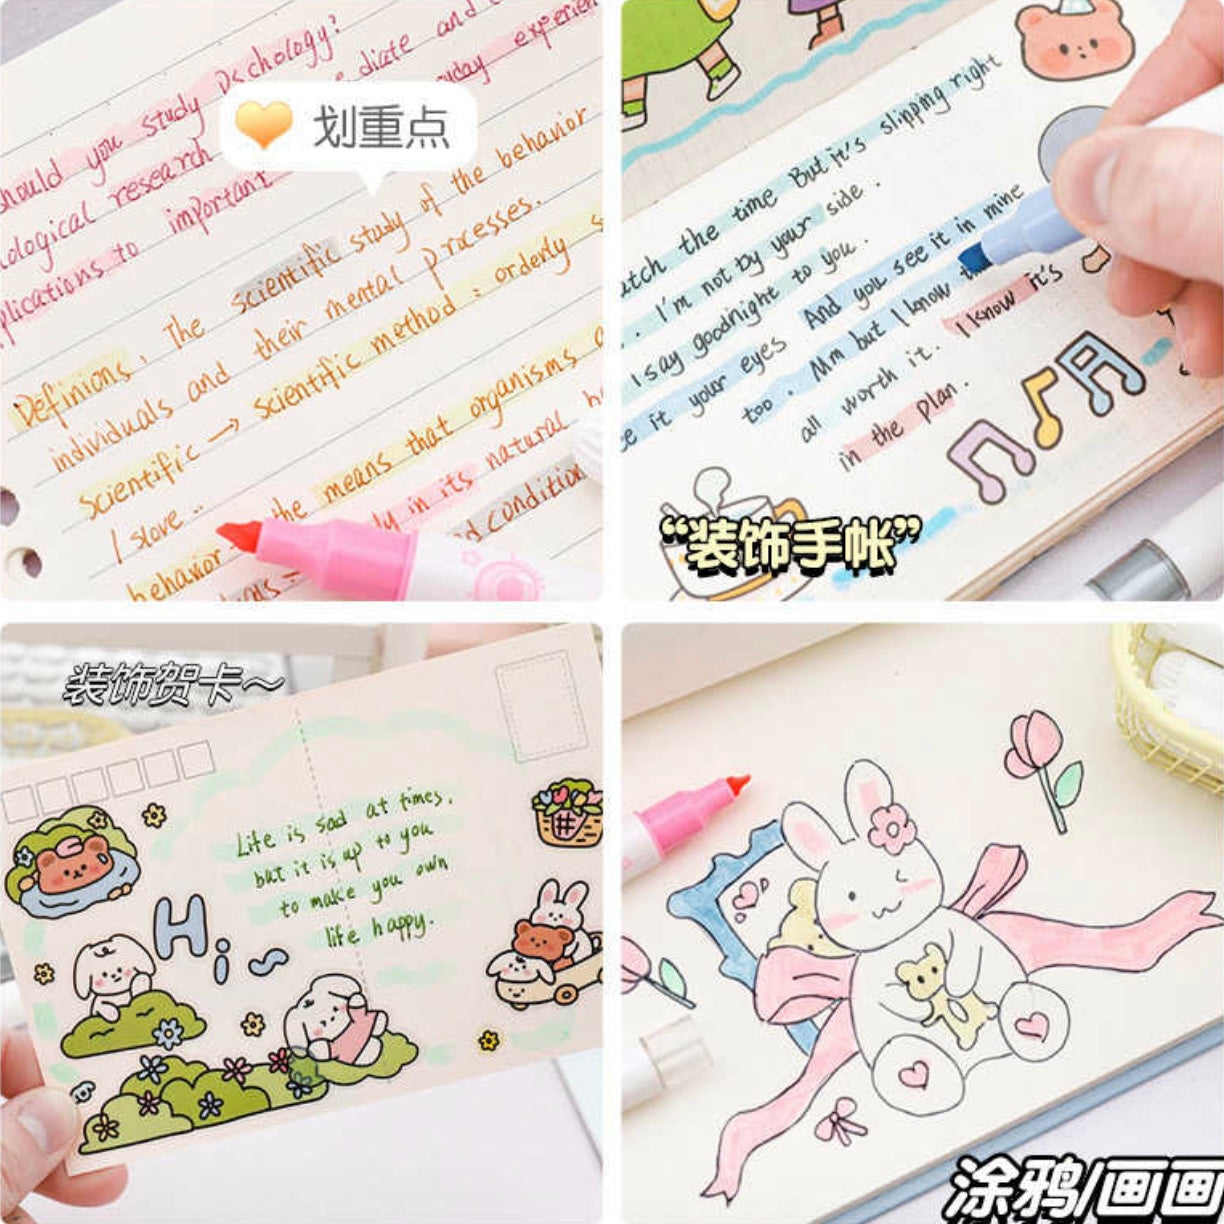 should you study Pschology?
ediate and
ological research
yday experien
plications to important
划重点
Definions, The scientific study of the behavior
individuals and their mental processes.
Scientific → scientific method : orderly
I slove .. the means that organisms
behavior
in its natural
condition
atch the time But it's slipping right
. I'm not by your side .
I say goodnight to you .
e it your eyes And you see it in mine
too . Mm but I know
all worth it. I know it's
in the plan .
“装饰手帐”
装饰贺卡～
Life is sad at times.
but it is up to you
to make you own
life happy.
Hi~
涂鸦/画画